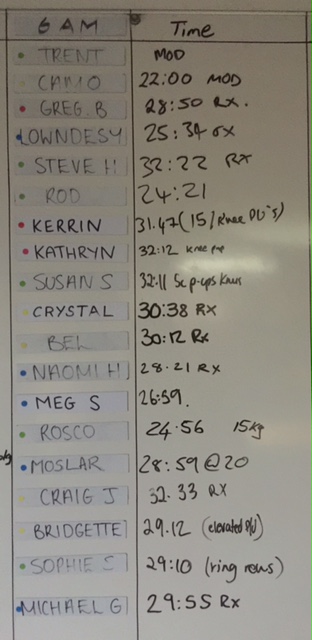 6 AM Time
TRENT MOD
CAMO 22:00 MOD
GREG.B 28:50 RX.
LOWNDESY 25:34 RX
STEVE H 32:22 RX
ROD 24:21
KERRIN 31.47 (15/Knee PU's)
KATHRYN 32:12 knee
SUSAN S 32:11 Sc p-ups knees
CRYSTAL 30:38 RX
BEL 30:12 Rx
NAOMI H 28.21 RX
MEG S 26:59.
ROSCO 24:56 15kg
MOSLAR 28:59 @20
CRAIG J 32.33 RX
BRIDGETTE 29.12 (elevated PU)
SOPHIE 29:10 (ring rows)
MICHAEL G 29:55 Rx